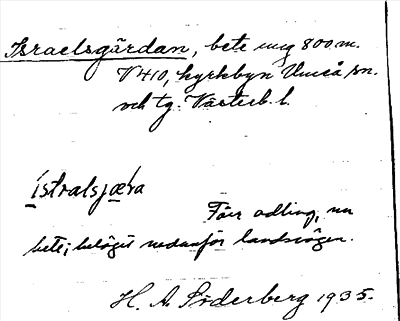 Israelsgärdan, bete ing 800 m.
V 410, kyrkbyn Umeå sn.
och tg. Västerb. l.
ístralsjæra
Förr odling, nu
bete; beläget nedanför landsvägen.
H. A. Söderberg 1935.